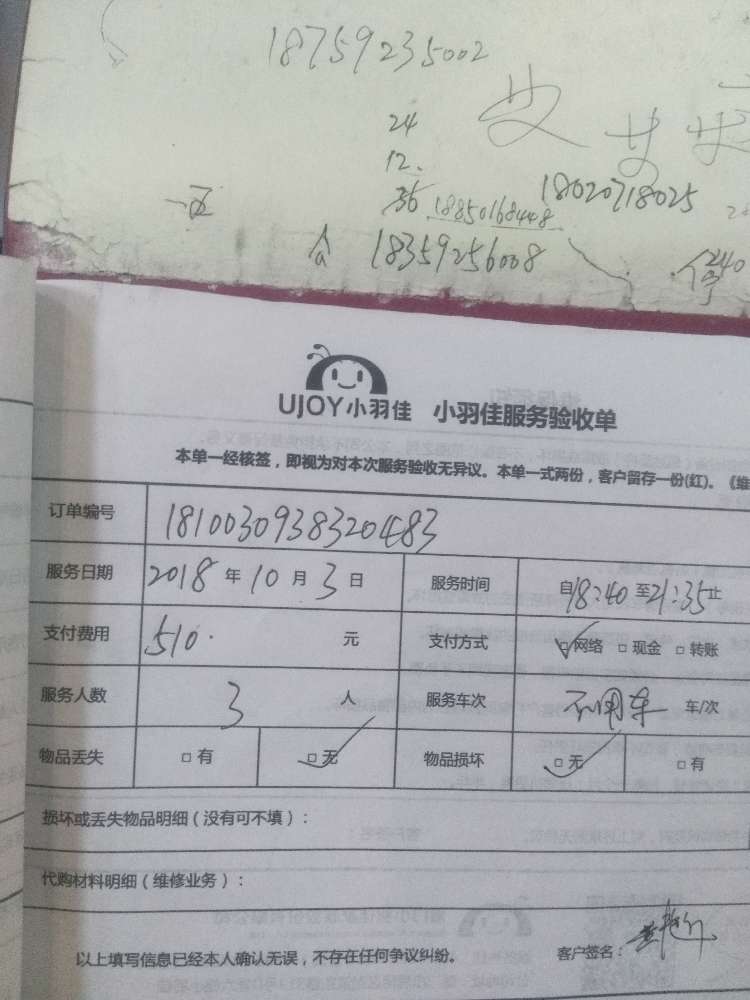 18759235002
24
12.
36 18850168448 18020718025
18359256008
240
UJOY小羽佳 小羽佳服务验收单
本单一经核签，即视为对本次服务验收无异议。本单一式两份，客户留存一份(红)。《维
订单编号 1810030938320483
服务日期 2018 年 10 月 3 日 服务时间 自18:40 至21:35止
支付费用 510. 元 支付方式 网络 现金 转账
服务人数 3 人 服务车次 不用车 车/次
物品丢失 有 无 物品损坏 无 有
损坏或丢失物品明细（没有可不填）：
代购材料明细（维修业务）：
以上填写信息已经本人确认无误，不存在任何争议纠纷。 客户签名：